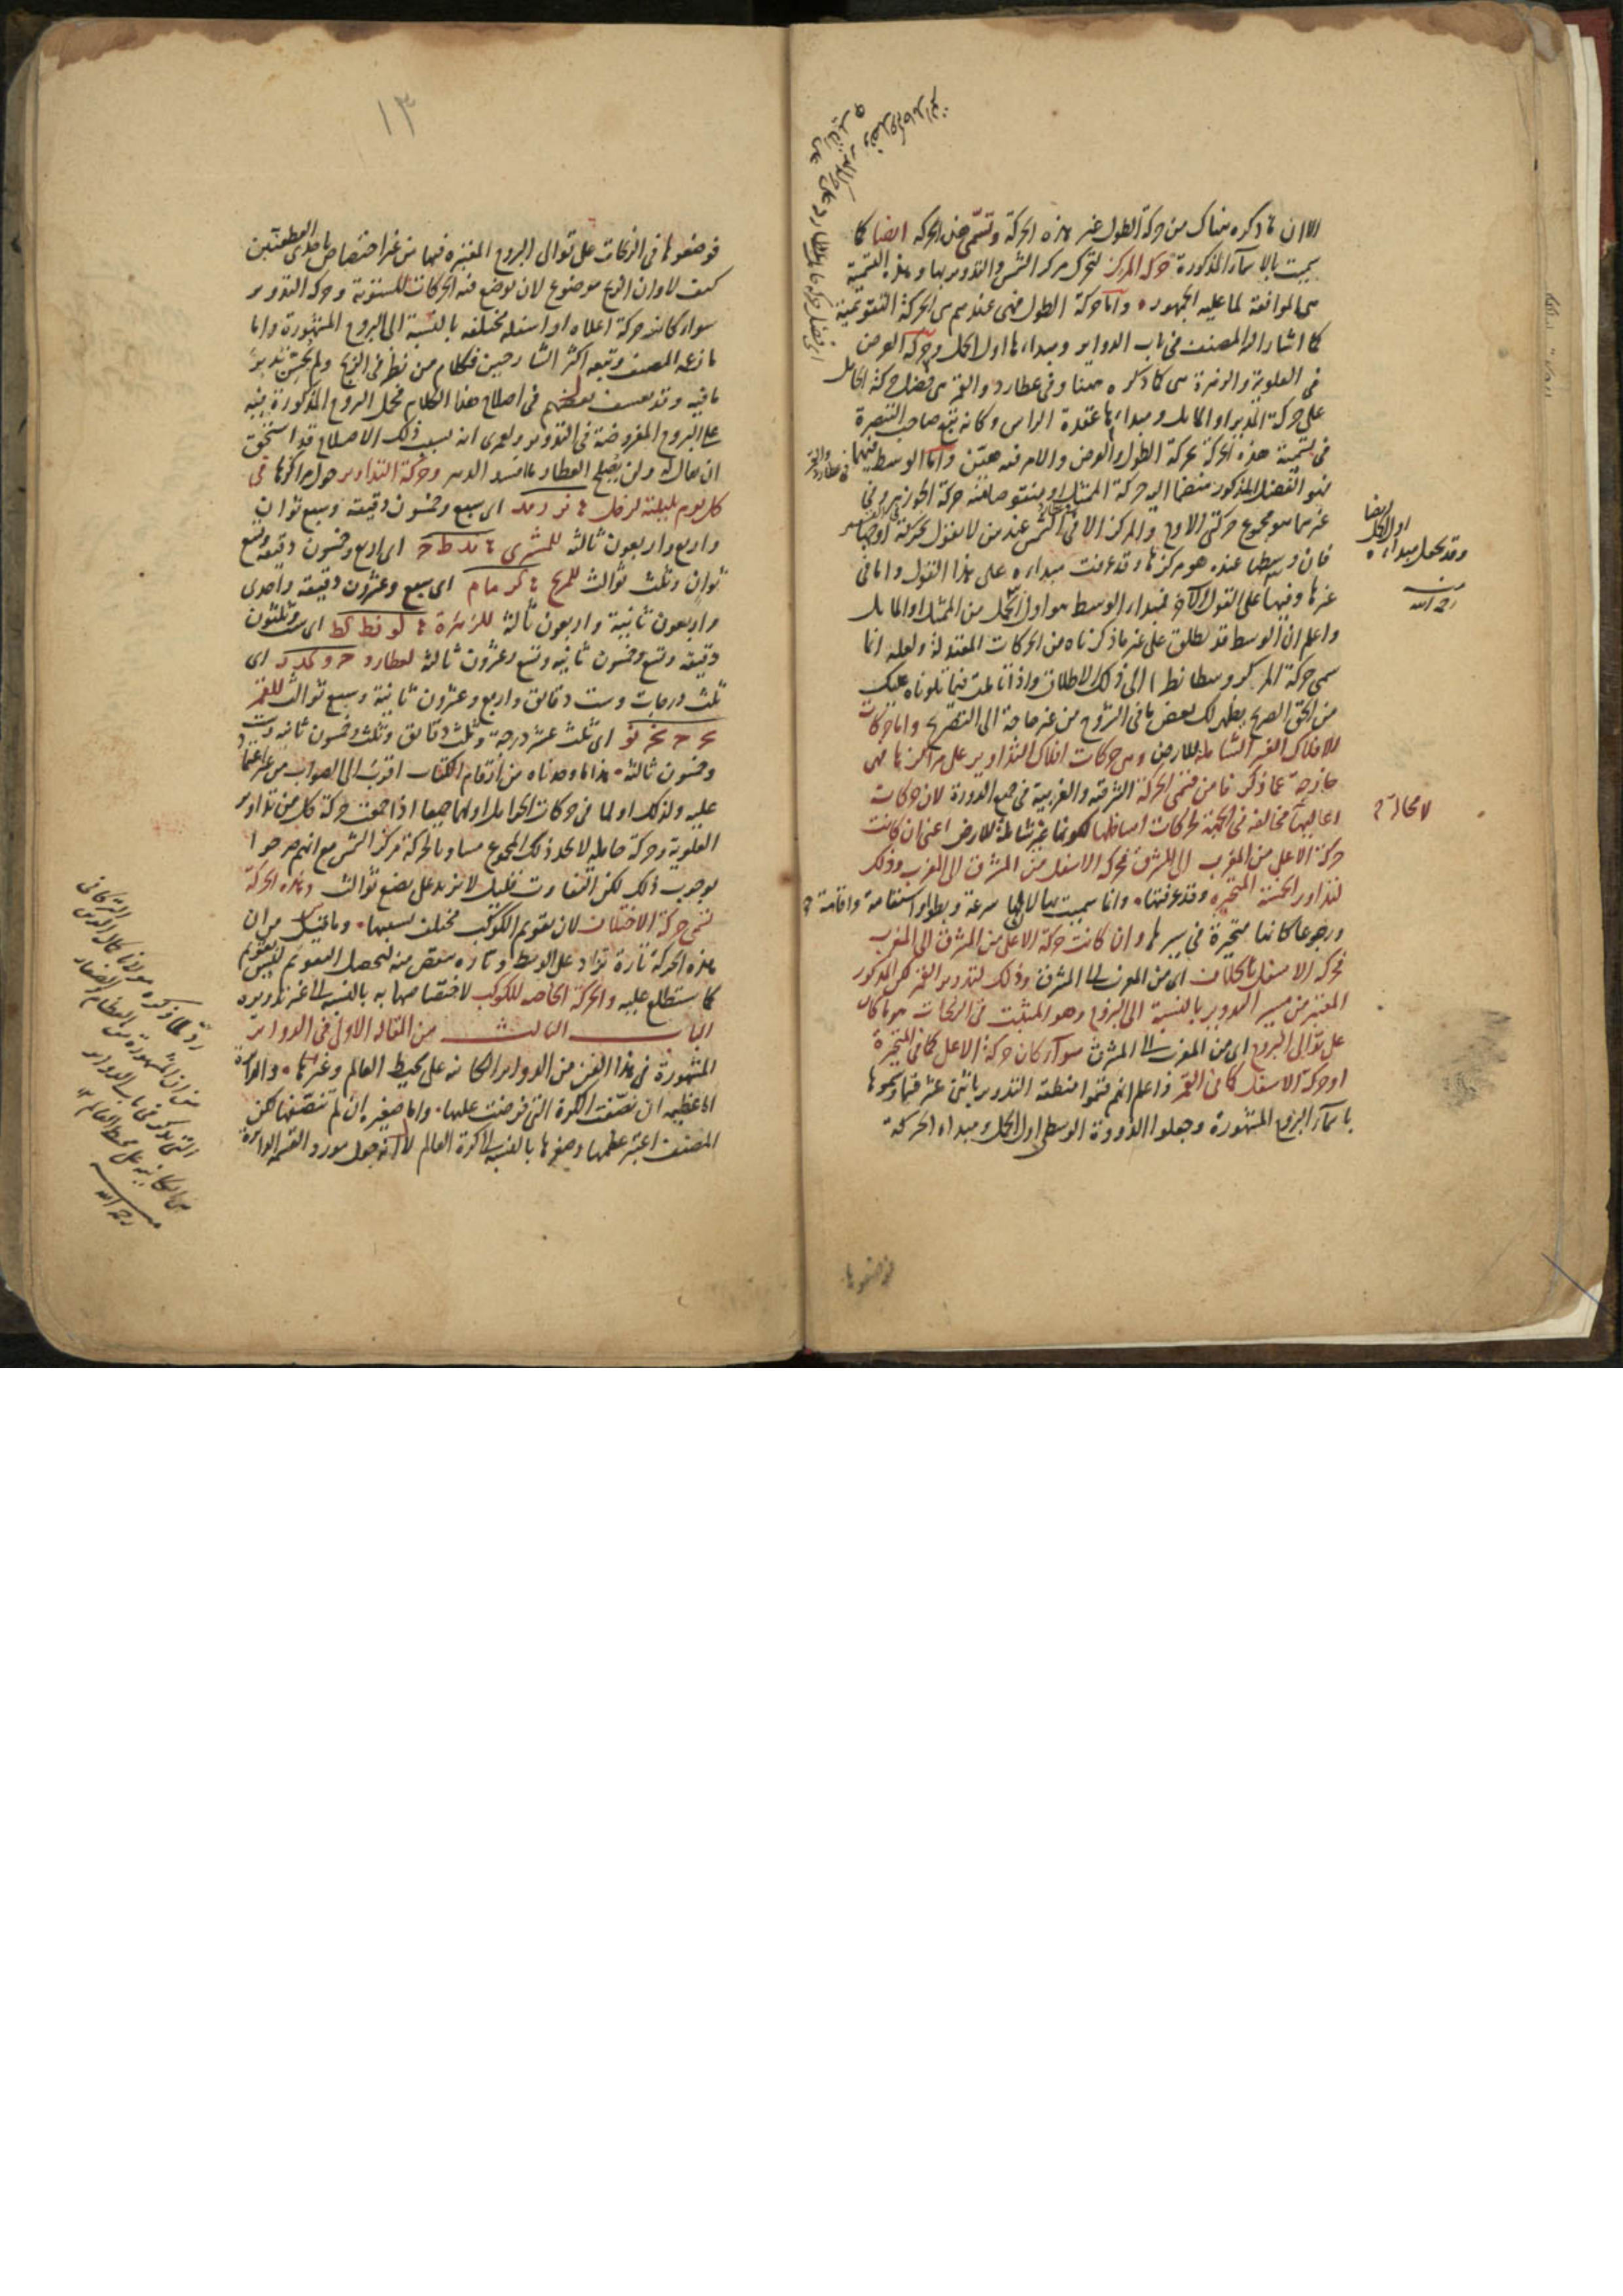 الا ان ما ذكره هناك من حركة الطول غير هذه الحركة وتسمى هذه الحركة ايضا كما
سميت بالاسماء المذكورة حركة المركز لتحرك مركز الشمس والتدوير بها وهذه التسمية
هى الموافقة لما عليه الجمهور واما حركة الطول فهى عندهم هى الحركة التقويمية
كما اشار اليه المصنف فى باب الدواير ومبداءها اول الحمل وحركة العرض
فى العلوية والزهرة هى كما ذكره ههنا وفى عطارد والقمر هى فضل حركة الحامل
على حركة المدير او المايل ومبداءها عقدة الراس وكانه تبع صاحب التبصرة
فى تسمية هذه الحركة بحركة الطول والعرض والامر فيه هين واما الوسط فيهما
فهو الفضل المذكور منضما اليه حركة الممثل او منتقصا عنه حركة الجوزهر وفى
غيرهما هو مجموع حركتى الاوج والمركز الا فى الشمس عند من لا يقول بحركة اوجها
فان وسطها عنده هو مركزها وقد عرفت مبداءه على هذا القول واما فى
غيرها وفيها على القول الآخر فمبداء الوسط هو اول الحمل من الممثل او المايل
واعلم ان الوسط قد يطلق على غير ما ذكرناه من الحركات المعتدلة ولعله انما
سمى حركة المركز وسطا نظرا الى ذلك الاطلاق واذا تاملت فيما تلوناه عليك
من الحق الصريح يظهر لك بعض ما فى الشروح من غير حاجة الى التصريح واما حركات
الافلاك الغير الشاملة للارض وهى حركات افلاك التداوير على مراكزها فهى
خارجة عما ذكرنا من قسمى الحركة الشرقية والغربية فى جميع الدورة لان حركات
اعاليها مخالفة فى الجهة لحركات اسافلها لكونها غير شاملة للارض اعنى ان كانت
حركة الاعلى من المغرب الى المشرق فحركة الاسفل من المشرق الى المغرب وذلك
لتداوير الخمسة المتحيرة وقد عرفتها وانما سميت بها لان لها سرعة وبطوا واستقامة واقامة و
ورجوعا كانها متحيرة فى سيرها وان كانت حركة الاعلى من المشرق الى المغرب
فحركة الاسفل بالخلاف اى من المغرب الى المشرق وذلك لتدوير القمر لكن المذكور
المعتبر من مسير التدوير بالنسبة الى البروج وهو المثبت فى الزيجات هو ما كان
على توالى البروج اى من المغرب الى المشرق سواء كان حركة الاعلى كما فى المتحيرة
او حركة الاسفل كما فى القمر واعلم انهم قسموا منطقة التدوير باثنى عشر قسما وسموها
باسماء البروج المشهورة وجعلوا الذروة الوسطى اول الحمل ومبداء الحركة
وقد يجعل مبداءه
اول الحمل ايضا
منه
رحمه الله
لا محالة
فوضعوها
١٣
فوضعوها فى الزيجات على توالى البروج المعتبرة فيها من غير اختصاص باحدى القطعتين
كيف لا وان الزيج موضوع لان يوضع فيه الحركات المستوية وحركة التدوير
سواء كانت حركة اعلاه او اسفله مختلفة بالنسبة الى البروج المشهورة واما
ما زعمه المصنف وتبعه اكثر الشارحين فكلام من نظر فى الزيج ولم يحسن تدبر
ما فيه وقد تعسف بعضهم فى اصلاح هذا الكلام فحمل البروج المذكورة فيه
على البروج المفروضة فى التدوير ولعمرى انه بسبب ذلك الاصلاح قد استحق
ان يقال له ولن يصلح العطار ما افسد الدهر وحركة التداوير حول مراكزها فى
كل يوم بليلته لزحل ؛ نز ز مد اى سبع وخمسون دقيقة وسبع ثوان
واربع واربعون ثالثة للمشترى ؛ ند ط ج اى اربع وخمسون دقيقة وتسع
ثوان وثلث ثوالث للمريخ ؛ كز ما م اى سبع وعشرون دقيقة واحدى
واربعون ثانية واربعون ثالثة للزهرة ؛ لو نط كط اى ست وثلثون
دقيقة وتسع وخمسون ثانية وتسع وعشرون ثالثة لعطارد ج و كد ز اى
ثلث درجات وست دقائق واربع وعشرون ثانية وسبع ثوالث للقمر
يج ج نج نو اى ثلث عشر درجة وثلث دقائق وثلث وخمسون ثانية وست
وخمسون ثالثة هذا ما وجدناه من ارقام الكتاب اقرب الى الصواب من غير اعتماد
عليه ولذلك
العلوية وحركة حامله لا نجد ذلك المجموع مساويا لحركة مركز الشمس مع انهم صرحوا
بوجوب ذلك لكن التفاوت قليل لا يزيد على بضع ثوالث وهذه الحركة
تسمى حركة الاختلاف لان تقويم الكوكب مختلف بسببها وما قيل من ان
هذه الحركة تارة تزاد على الوسط وتارة تنقص منه ليحصل التقويم فليس بقويم
كما ستطلع عليه والحركة الخاصة للكوكب لاختصاصها به بالنسبة الى غير تدويره
الباب الثالث من المقالة الاولى فى الدواير
المشهورة فى هذا الفن من الدواير الكائنة على محيط العالم وغيرها والدائرة
اما عظيمة ان نصفت الكرة التى فرضت عليها واما صغيرة ان لم تنصفها لكن
المصنف اعتبر عظمها وصغرها بالنسبة الى كرة العالم لا انه جعل مورد القسمة الدائرة
رد لما ذكره مولانا كمال الدين التركمانى
من ان المشهورة من العظام والصغار
التى يذكر فى باب الدواير
هى الكائنة على محيط العالم
منه
رحمه الله